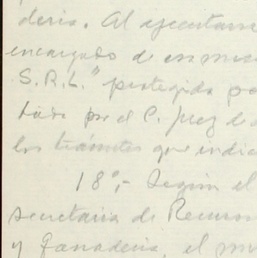 dería. Al ejecutarse
encargado de
S.R.L." protegida po
tado por el C. Juez de
los trámites que indic
18º.- Según el
Secretaria de Recurso
y Ganadería, el